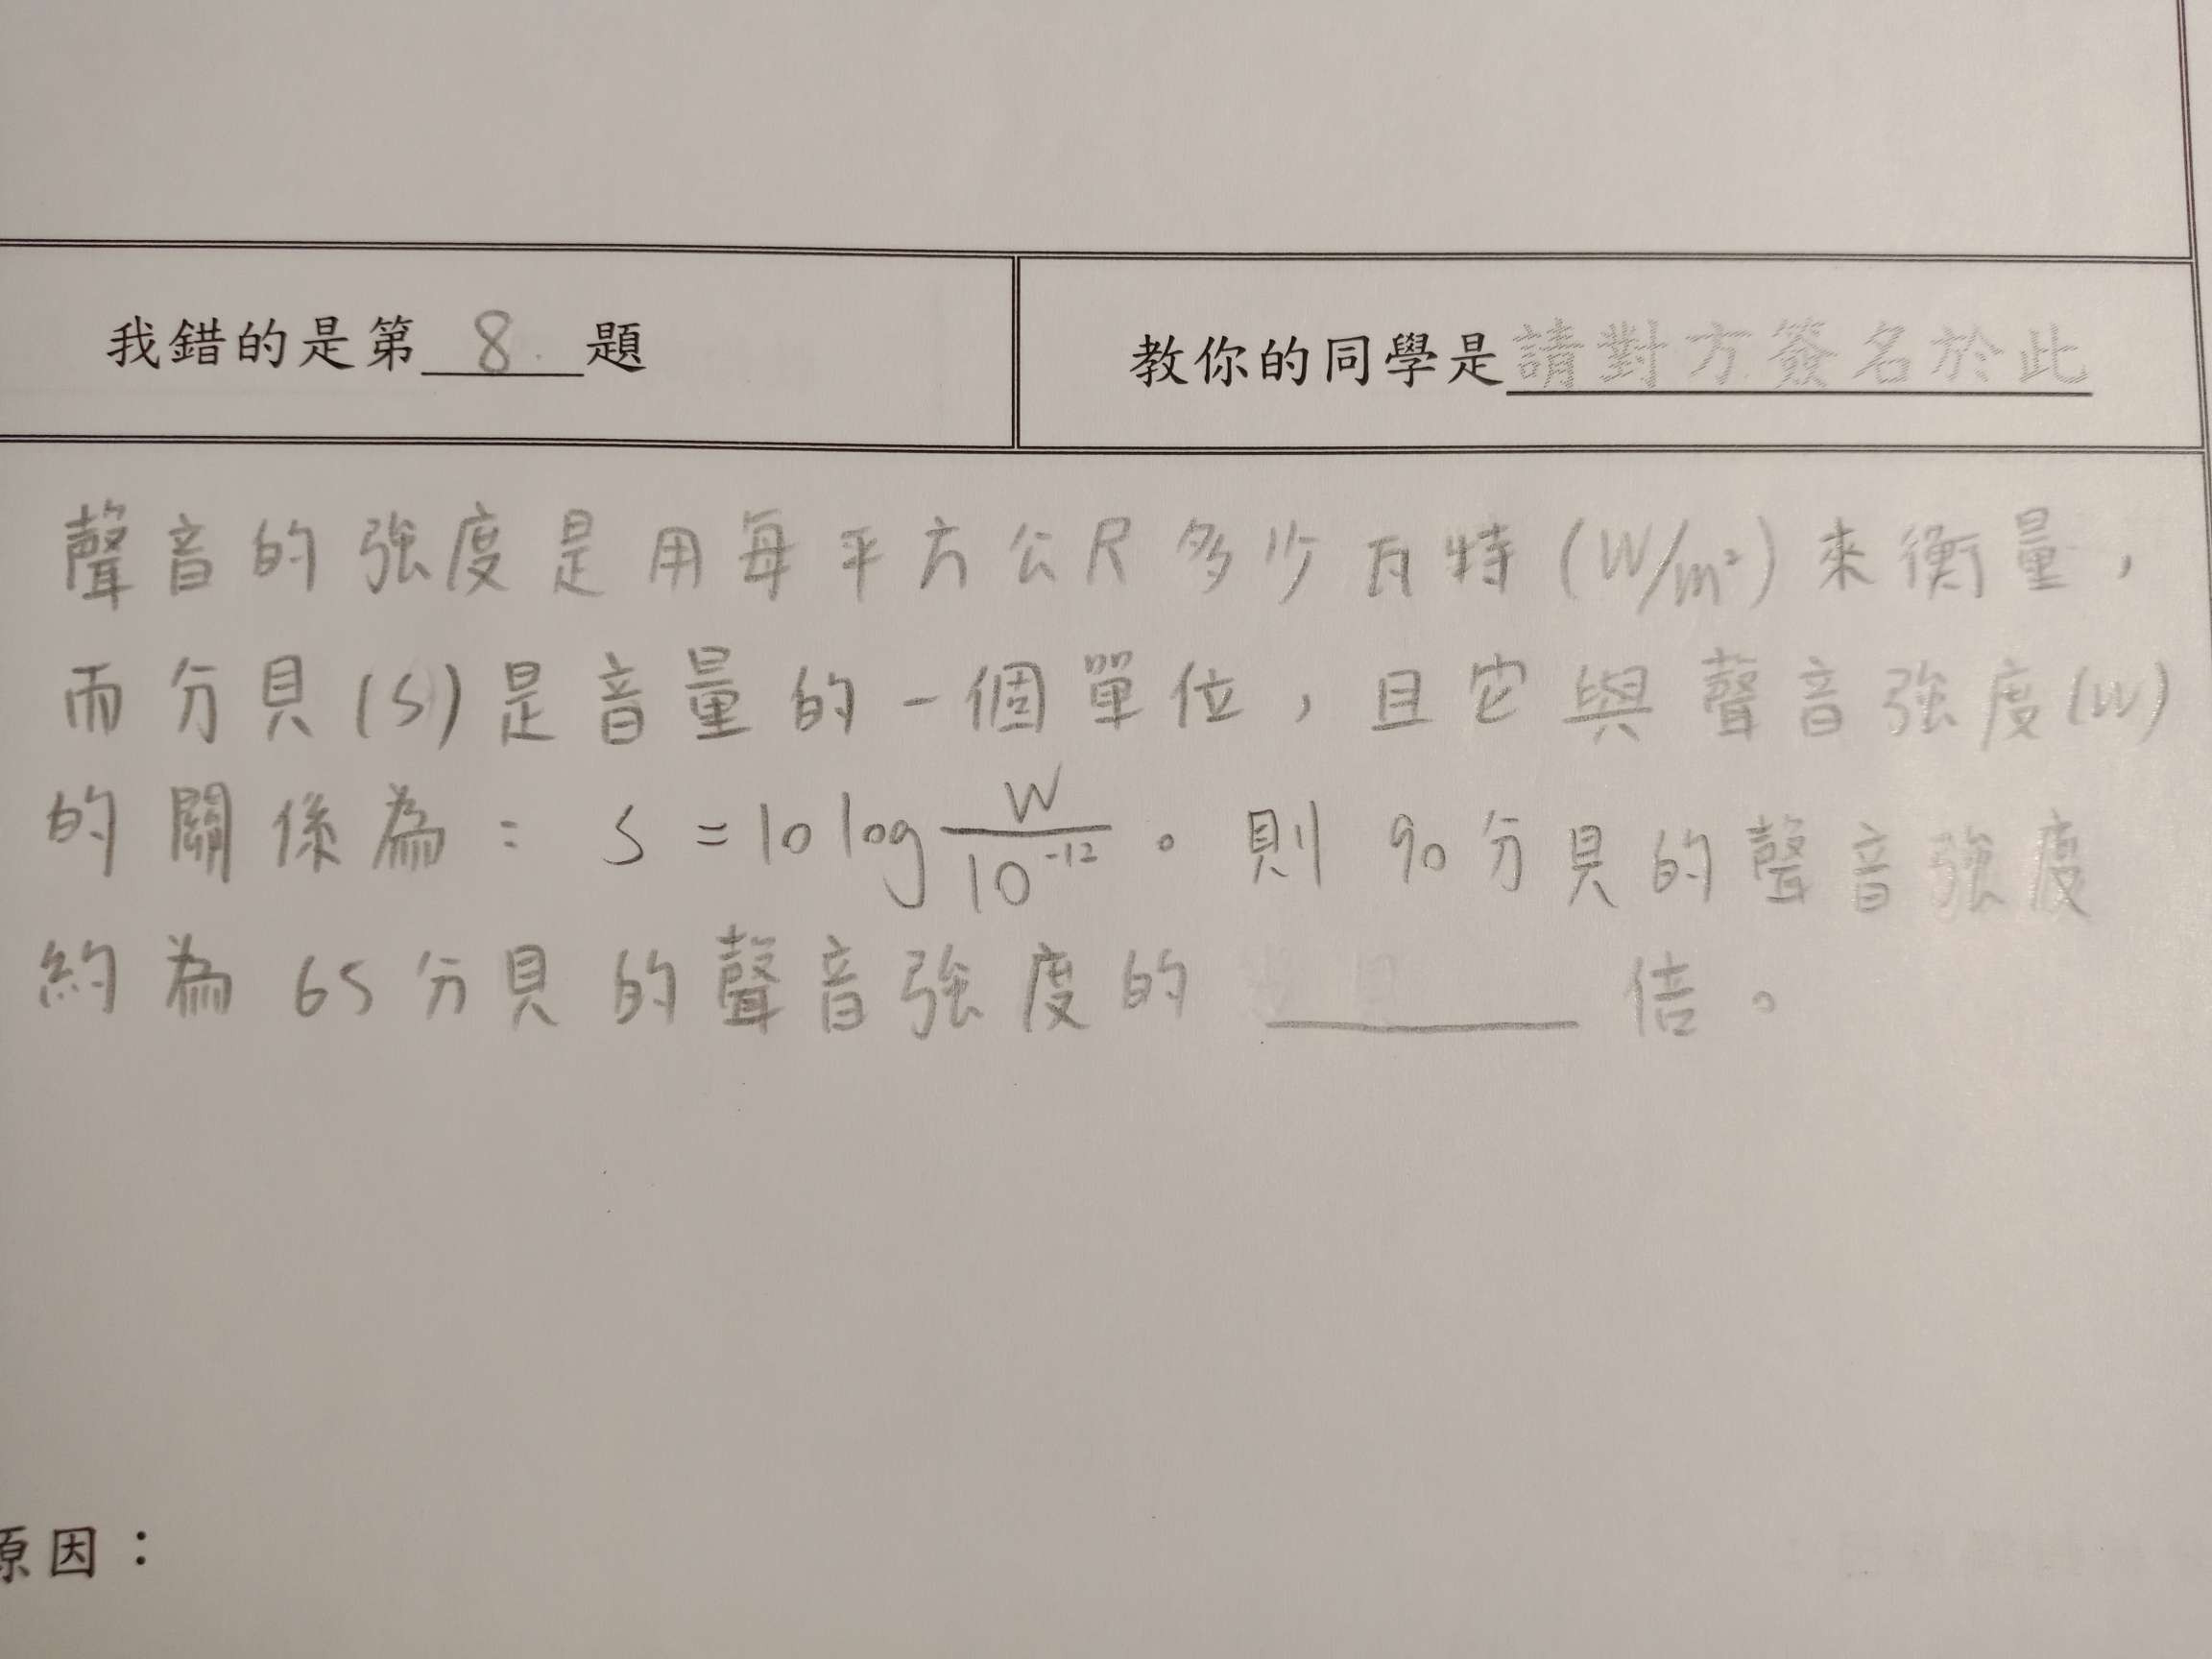 我錯的是第 8 題
教你的同學是請對方簽名於此
聲音的強度是用每平方公尺多少瓦特(W/m²)來衡量，
而分貝(S)是音量的一個單位，且它與聲音強度(W)
的關係為：S=10log W/10⁻¹²。則90分貝的聲音強度
約為65分貝的聲音強度的______倍。
原因：